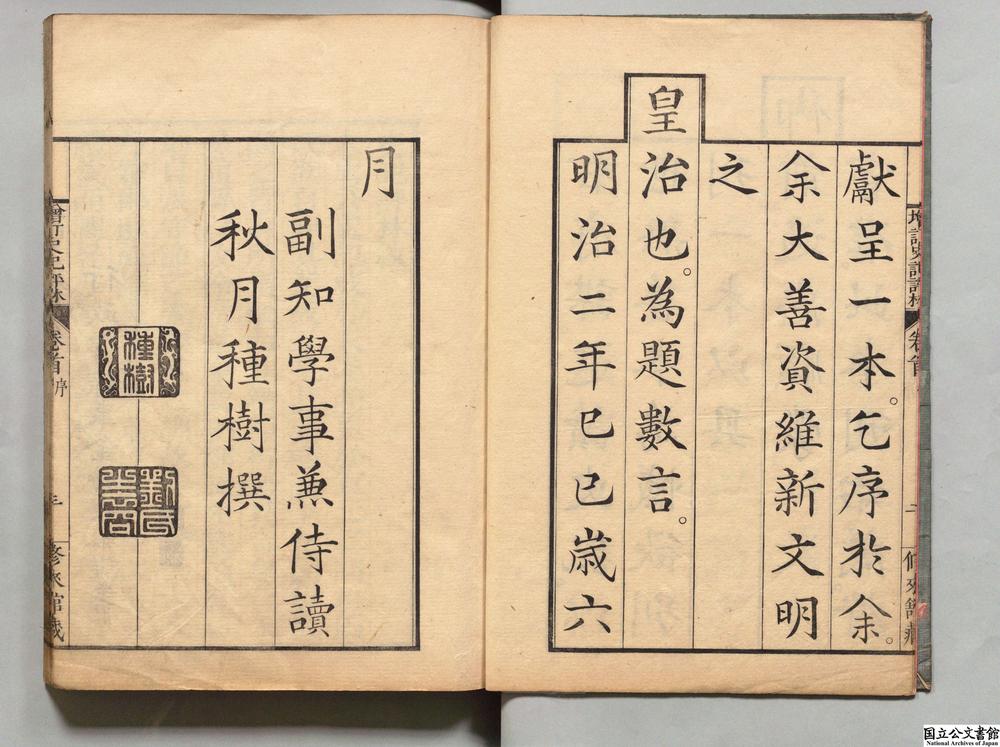 獻呈一本。乞序於余。
余大善資維新文明
之
皇治也。為題數言。
明治二年己巳歲六
月
副知學事兼侍讀
秋月種樹撰
種樹
增訂史記評林
卷首
二
修來館藏
增訂史記評林
卷首 序
三
修來館藏
国立公文書館
National Archives of Japan